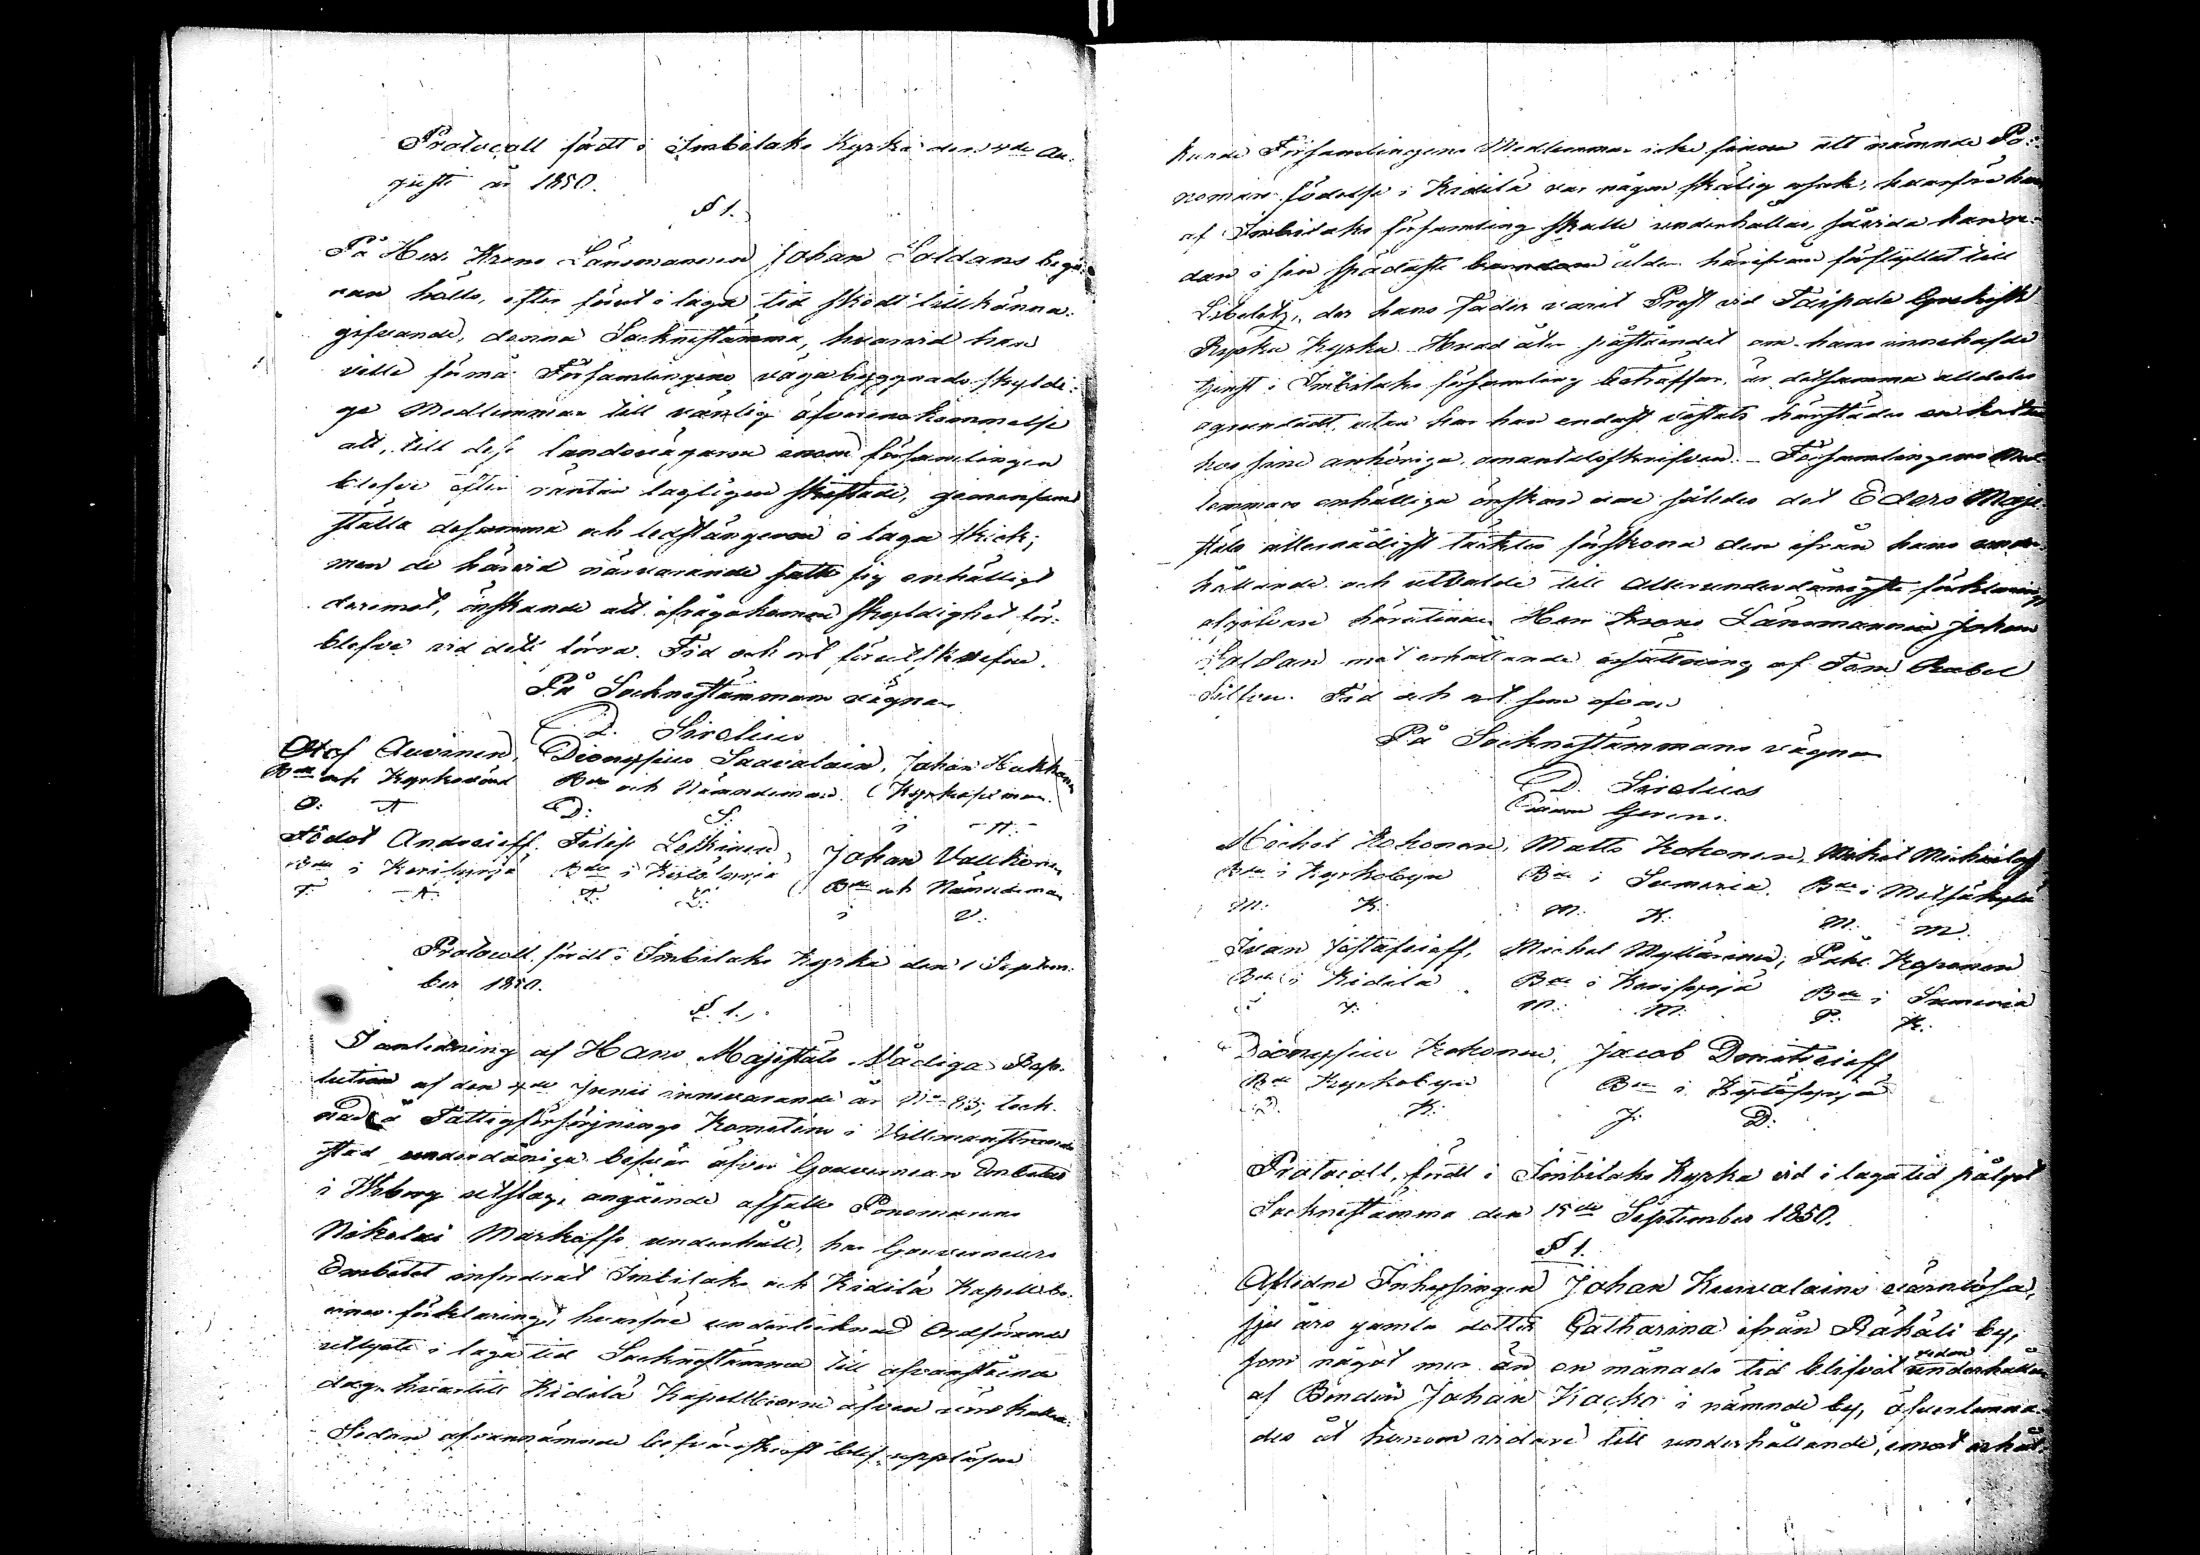 Protocoll fördt i Imbilaks Kyrka den 4de Au-
gusti år 1850.
§ 1.
På Herr Krono Länsmannen Johan Soldans begä-
ran hölls, efter förut i laga tid skedt tillkänna-
gifvande, denna Socknestämma, hvarvid han
ville förmå Församlingens vägabyggnads skyldi-
ge Medlemmar till vänlig öfverenskommelse
att, till dess landsvägarne inom församlingen
blefve efter räntan lagligen skiftade, gemensamt
ställa desamma och ledstängerne i laga skick;
men de härvid närvarande satte sig enhälligt
deremot, önskande att ifrågakomne skyldighet för-
blefve vid dett förra. Tid och ort förutskrefne.
På Socknestämmans vägnar
D. Sirelius
Olof Auvinen, Dionysius Saavalain, Johan Hukkanen
Bde och Kyrkovärd Bde och Nämndeman. Kyrkosexman.
O: A D: S: J H:
Fedot Andreieff. Filip Leskinen, Johan Valkonen
Bde i Karisyrjä Bde i Kytösyrjä Bde och Nämndeman
F. A. F. L: J V:
Protocoll fördt i Imbilaks Kyrka den 1 Septem-
ber 1850.
§. 1.
I anledning af Hans Majestäts Nådiga Reso-
lution af den 4de Junii innevarande år No 83, teck-
nad å Fattigförsörjnings Komiténs i Villmanstrands
stad underdåniga besvär öfver Gouverneurs Embetets
i Wiborg utslag, angående afsatte Ponomarens
Nikolai Markoffs underhåll, har Gouverneurs
Embetet infordrat Imbilaks och Kidilä Kapellbo-
ernes förklaring, hvarföre undertecknad Ordförande
utlyste i laga tid Socknestämma till ofvanstående
dag, hvartill Kidilä Kapellboerne äfven voro kallade.
Sedan ofvannämnde besvärsskrift blef uppläsen
kunde Församlingens Medlemmar icke finna att nämnde Po-
nomars födelse i Kidilä var någon skälig orsak, hvarföre han
af Imbilaks församling skulle underhållas, såvida han re-
dan i sin spädaste barndom ålder härifrån förflyttat till
Libelitz, der hans fader varit Prest vid Taipale Grekisk
Ryska Kyrka. Hvad åter påståendet om hans innehafde
tjenst i Imbilaks församling beträffar, är detsamma alldeles
ogrundadt, utan har han endast vistats härstädes en kort tid
hos sine anhöriga, omantalsskrifven. – Församlingens Med-
lemmars enhälliga önskan vore således det Eders Maje-
stäts allernådigst täcktes förskona den ifrån hans under-
hållande och utvalde till allerunderdånigste förklarings
afgifvare häröfver Herr Krono Länsmannen Johan
Soldan mot erhållande ersättning af Fem Rubel
Silfver. Tid och ort som ofvan
På Socknestämmans vägnar
D. Sirelius
Michel Kokonen, Matts Kokonen, Mihail Michailoff
Bde i Kyrkobyn Bde i Sumeria. Bde i Metsäkylä
M: K: M: K: M: M.
Ivan Jestafeieff, Michel Myllärinen, Påhl Koponen
Bde i Kidilä Bde i Karisyrjä Bde i Sumeria
I: J: M: M: P: K:
Dionysius Kokonen, Jacob Donatieieff
Bde Kyrkobyn Bde i Kytösyrjä
D. K: J: D:
Protocoll, fördt i Imbilaks Kyrka vid i laga tid pålyst
Socknestämma den 15de September 1850.
§ 1.
Aflidne Inhysingen Johan Kurvalains värnlösa,
sju års gamla dotter Catharina ifrån Räkäli by,
som något mer än en månads tid blifvit redan underhållen
af Bonden Johan Kacko i nämnde by, öfverlemna-
des åt honom vidare till underhållande, emot erhål-